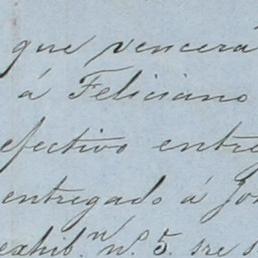 que vencerá
á Feliciano
efectivo entre
entregado á Jo
exhib.n n.o 5. sre s